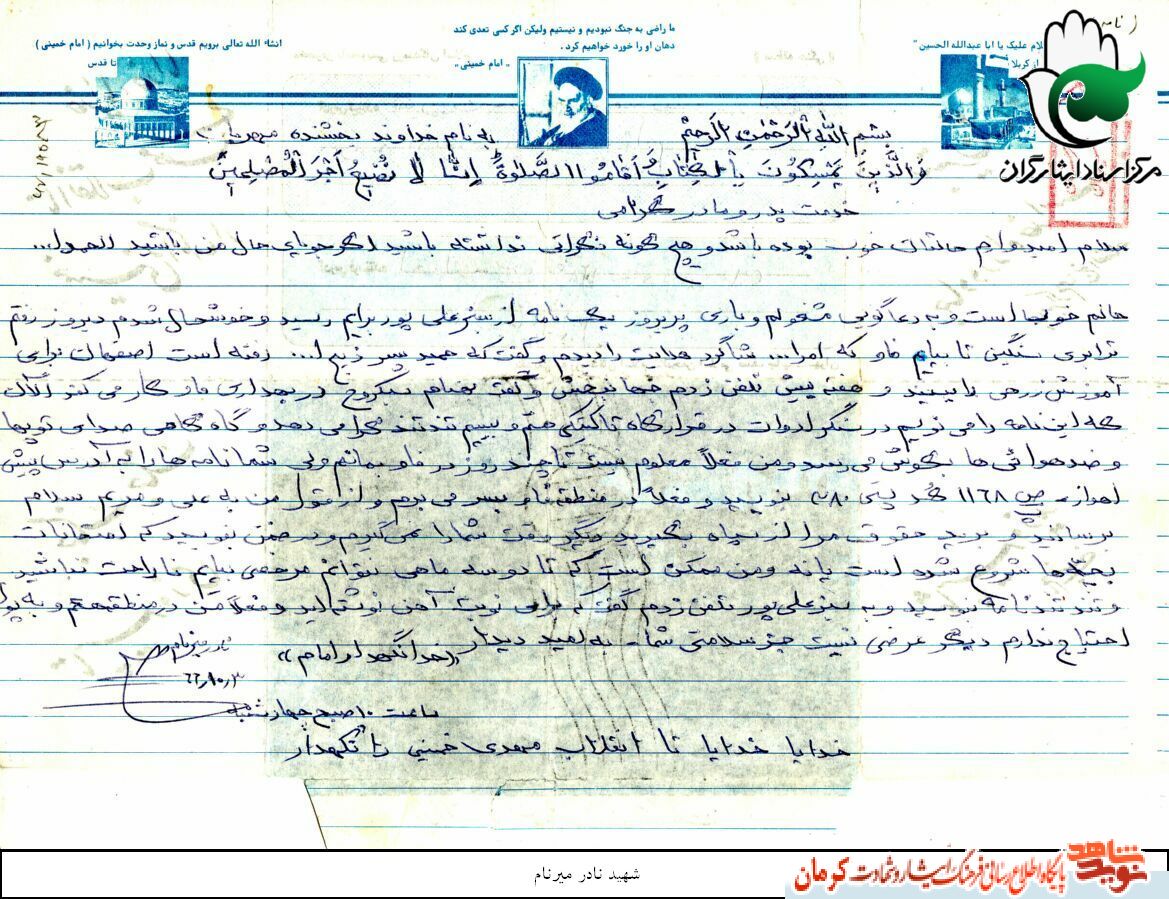 ما راضی به جنگ نبودیم و نیستیم ولیکن اگر کسی تعدی کند
دهان او را خورد خواهیم کرد .
" امام خمینی "
سلام علیک یا ابا عبدالله الحسین "
از کربلا
انشاء الله تعالی برویم قدس و نماز وحدت بخوانیم ( امام خمینی )
تا قدس
مرکز اسناد ایثارگران
بسم الله الرحمن الرحیم به نام خداوند بخشنده مهربان
وَالَّذِینَ یُمَسِّکُونَ بِالْکِتابِ وَ أَقامُوا الصَّلوةَ إِنَّا لا نُضِیعُ أَجْرَ الْمُصْلِحِینَ
خدمت پدر و مادر گرامی
سلام امیدوارم حالتان خوب بوده باشد و هیچ گونه نگرانی نداشته باشید اگر جویای حال من باشید الحمدا...
حالم خوب است و به دعاگویی مشغولم و باری پریروز یک نامه از سبزعلی پور برایم رسید و خوشحال شدم دیروز رفتم
ترابری سنگین تا بیایم فاو که امرا... شاگرد هدایت را دیدم و گفت که حمید پسر ذبیح ا... رفته است اصفهان برای
آموزش زرهی را ببیند و هفته پیش تلفن زدم جهانبخش و گفت بهنام سکروح در بهداری فاو کار می کند الآن
که این نامه را می نویسم در سنگر ادوات در قرارگاه تاکتیکی هستم و بیسیم تند تند می دهد و گاه گاهی صدای توپها
و ضد هوائی ها بگوش می رسد و من فعلاً معلوم نیست تا چند روز در فاو بمانم ولی شما نامه ها را به آدرس پیش
اهواز ـ ص ۱۱۶۸ کد پستی ۸۰ بنویسید و فعلاً در منطقه فاو بسر می برم و از قول من به علی و مریم سلام
برسانید و بروید حقوق مرا از سپاه بگیرید دیگر وقت شما را نمی گیرم و در ضمن بنویسید که امتحانات
بچه ها شروع شده است یا نه و من ممکن است که تا دو سه ماهی نتوانم مرخصی بیایم ناراحت نباشید
و تند تند نامه بنویسید و به سبزعلی پور تلفن زدم گفت که برای نوبت آهن نوشته اید و فعلاً من در منطقه هستم و به پول
احتیاج ندارم دیگر عرضی نیست جز سلامتی شما. به امید دیدار
«خدا نگهدار امام»
نادر میرنام
ساعت ۱۰ صبح چهارشنبه
خدایا خدایا تا انقلاب مهدی خمینی را نگهدار
شهید نادر میرنام
نوید شاهد
پایگاه اطلاع رسانی فرهنگ ایثار و شهادت کرمان